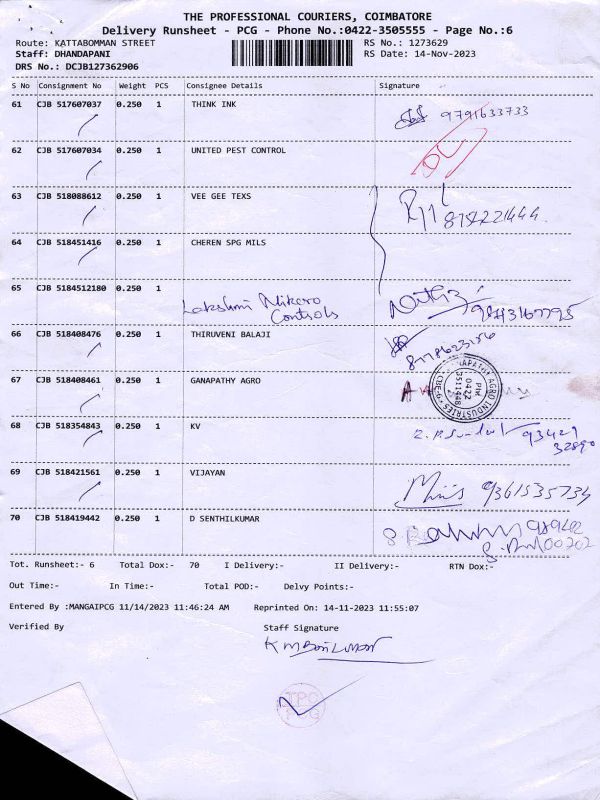 THE PROFESSIONAL COURIERS, COIMBATORE
Delivery Runsheet - PCG - Phone No.:0422-3505555 - Page No.:6
Route: KATTABOMMAN STREET RS No.: 1273629
Staff: DHANDAPANI RS Date: 14-Nov-2023
DRS No.: DCJB127362906
S No Consignment No Weight PCS Consignee Details Signature
61 CJB 517607037 0.250 1 THINK INK 9791633733
62 CJB 517607034 0.250 1 UNITED PEST CONTROL
63 CJB 518088612 0.250 1 VEE GEE TEXS
64 CJB 518451416 0.250 1 CHEREN SPG MILS
65 CJB 5184512180 0.250 1 Lakshmi Mikero Controls 9843167795
66 CJB 518408476 0.250 1 THIRUVENI BALAJI 8778623156
67 CJB 518408461 0.250 1 GANAPATHY AGRO
68 CJB 518354843 0.250 1 KV 93421 32890
69 CJB 518421561 0.250 1 VIJAYAN 9361535734
70 CJB 518419442 0.250 1 D SENTHILKUMAR
Tot. Runsheet:- 6 Total Dox:- 70 I Delivery:- II Delivery:- RTN Dox:-
Out Time:- In Time:- Total POD:- Delvy Points:-
Entered By :MANGAIPCG 11/14/2023 11:46:24 AM Reprinted On: 14-11-2023 11:55:07
Verified By Staff Signature